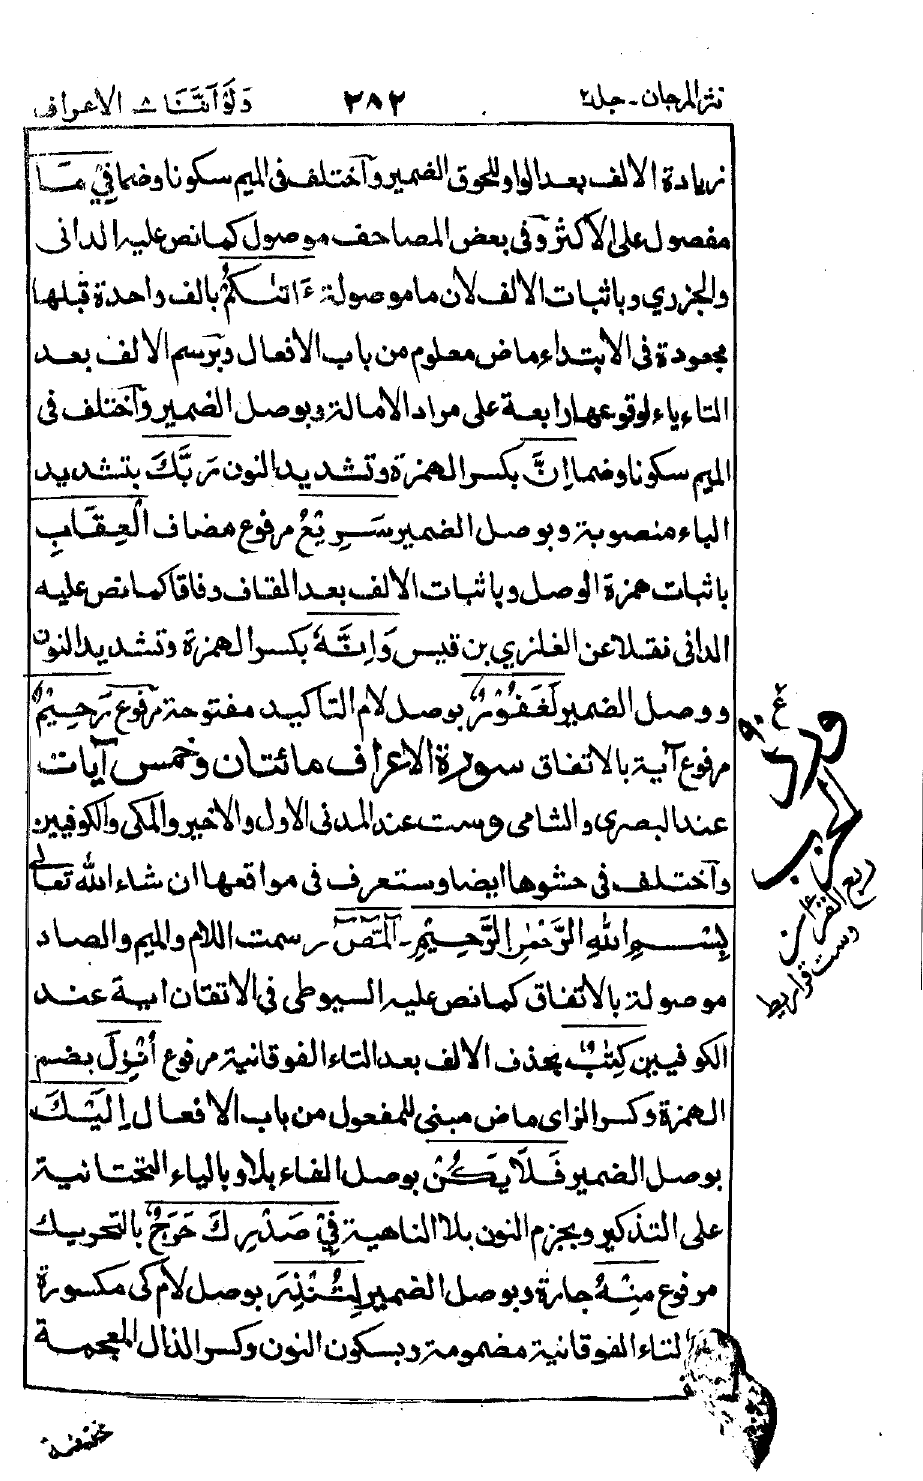 نثر المرجان - جلد ٢
٣٨٢
ولو اننا ٨ الاعراف
زيادة الالف بعد الواو للحوق الضمير واختلف فى الميم سكونا وضما فِيْ مَا
مفصول على الأكثر وفى بعض المصاحف موصول كما نص عليه الدانى
والجزري وباثبات الالف لان ما موصولة ءَاتىٰكُمْ بالف واحدة قبلها
مجعودة فى الابتداء ماض معلوم من باب الافعال وبرسم الالف بعد
التاء ياء لوقوعها رابعة على مراد الامالة وبوصل الضمير واختلف فى
الميم سكونا وضما اِنَّ بكسر الهمزة وتشديد النون رَبَّكَ بتشديد
الباء منصوبة وبوصل الضمير سَرِيْعُ مرفوع مضاف الْعِقَابِ
باثبات همزة الوصل وباثبات الالف بعد القاف وفاقا كما نص عليه
الدانى نقلا عن الغازي بن قيس وَاِنَّهٗ بكسر الهمزة وتشديد النون
ووصل الضمير لَغَفُوْرٌ بوصل لام التاكيد مفتوحة مرفوع رَحِيْمٌ
مرفوع آية بالاتفاق سورة الاعراف مائتان وخمس آيات
عند البصرى والشامى وست عند المدنى الاول والاخير والمكى والكوفيين
واختلف فى حشوها ايضا وستعرف فى مواقعها ان شاء الله تعالى
بِسْمِ اللهِ الرَّحْمٰنِ الرَّحِيْمِ - الٓمّٓصٓ رسمت اللام والميم والصاد
موصولة بالاتفاق كما نص عليه السيوطى فى الاتقان اية عند
الكوفيين كِتٰبٌ بحذف الالف بعد التاء الفوقانية مرفوع اُنْزِلَ بضم
الهمزة وكسر الزاى ماض مبنى للمفعول من باب الافعال اِلَيْكَ
بوصل الضمير فَلَا يَكُنْ بوصل الفاء بلا وبالياء التحتانية
على التذكير وبجزم النون بلا الناهية فِيْ صَدْرِكَ حَرَجٌ بالتحريك
مرفوع مِنْهُ جارة وبوصل الضمير لِتُنْذِرَ بوصل لام كى مكسورة
التاء الفوقانية مضمومة وبسكون النون وكسر الذال المعجمة
ع
ورد
الحزب
ربع القران
وست قواريط